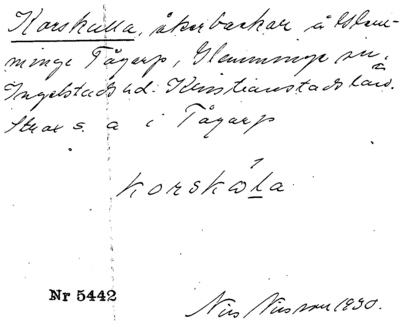 Korskulla, åkerbackar å Glem-
minge Tågarp, Glemminge sn,
Ingelstads hd. Kristianstads län.
Strax s. a i Tågarp
korskɷla
Nr 5442
Nils Nilsson 1930.